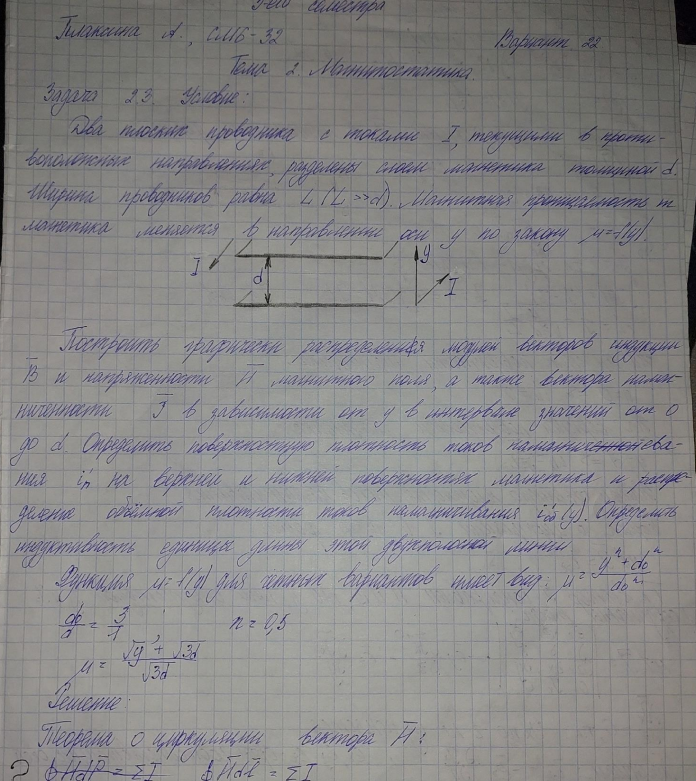 семестра
Плаксина А., СМ6-32 Вариант 22
Тема 2. Магнитостатика.
Задача 2.3. Условие:
Два плоских проводника с токами I, текущими в проти-
воположных направлениях, разделены слоем магнетика толщиной d.
Ширина проводников равна L (L >> d). Магнитная проницаемость m
магнетика меняется в направлении оси y по закону μ=f(y).
I d y I
Построить графически распределения модулей векторов индукции
B̄ и напряженности H̄ магнитного поля, а также вектора намаг-
ниченности J̄ в зависимости от y в интервале значений от 0
до d. Определить поверхностную плотность токов намагничева-
ния i'п на верхней и нижней поверхностях магнетика и распре-
деление объёмной плотности токов намагничивания i'об(y). Определить
индуктивность единицы длины этой двухполосной линии.
Функция μ=f(y) для четных вариантов имеет вид: μ = (y^n + d₀^n)/d₀^n
d₀/d = 3/1; n = 0,5
μ = (√y + √3d)/√3d
Решение:
Теорема о циркуляции вектора H̄:
∮H̄dl̄ = ΣI